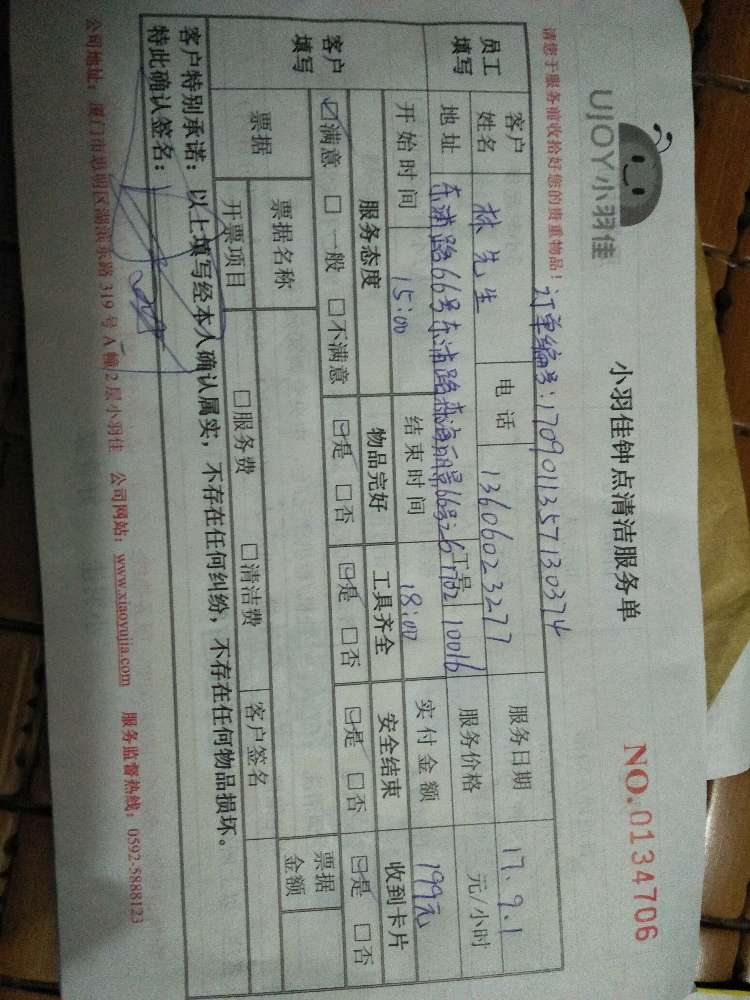 UJOY小羽佳
小羽佳钟点清洁服务单
NO.0134706
请您于服务前收拾好您的贵重物品！
订单编号:1709011357130374
员工填写
客户姓名 林先生 电话 13606023277 服务日期 17.9.1
地址 东浦路66号东浦路森海丽景66号 工号 10016 服务价格 元/小时
开始时间 15:00 结束时间 18:00 实付金额 199元
客户填写
服务态度 物品完好 工具齐全 安全结束 收到卡片
☑满意 □一般 □不满意 ☑是 □否 ☑是 □否 ☑是 □否 ☑是 □否
票据 票据名称 客户签名 票据金额
开票项目 □服务费 □清洁费
客户特别承诺：以上填写经本人确认属实，不存在任何纠纷，不存在任何物品损坏。
特此确认签名：
公司地址：厦门市思明区湖滨东路 319 号 A 幢 2 层小羽佳 公司网站：www.xiaoyujia.com 服务监督热线：0592-5888123